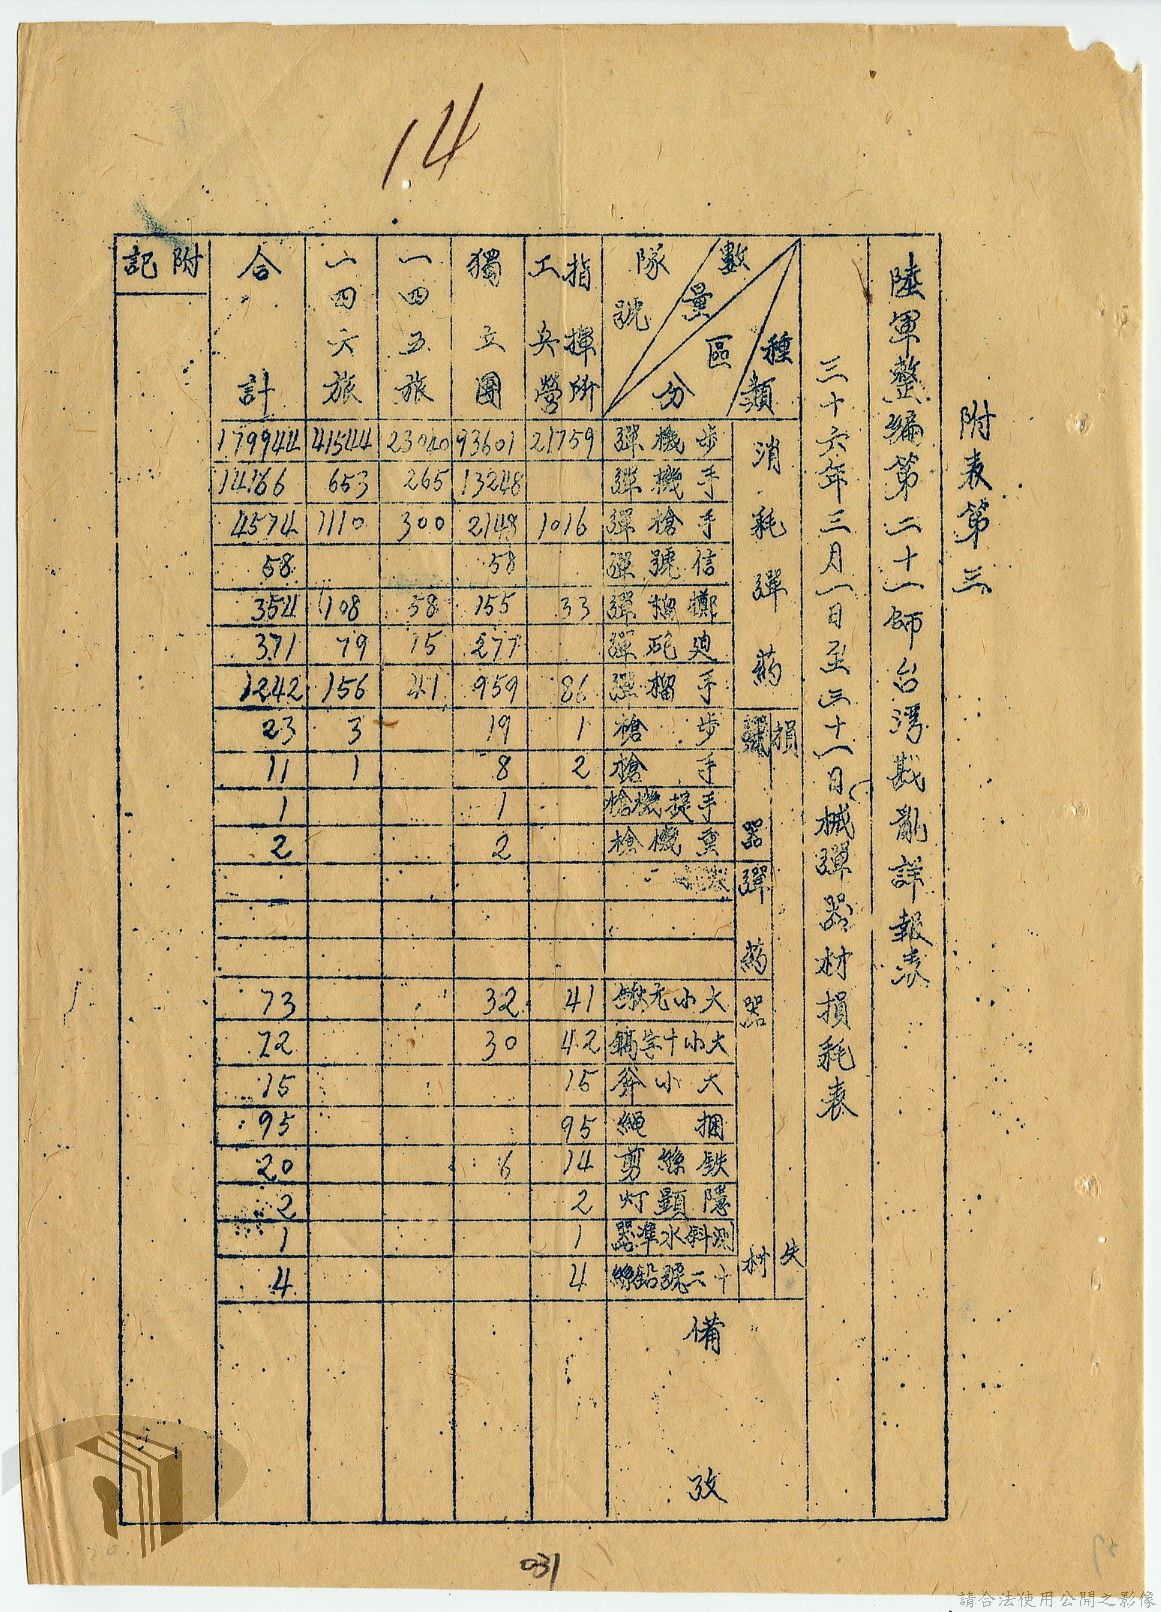 14
附表第三
陸軍整編第二十一師台灣戡亂詳報表
三十六年三月一日至三十一日械彈器材損耗表
種類 區分 數量 隊號
指揮所 工兵營
獨立團
一四五旅
一四六旅
合計
附記
消耗彈藥
步機彈 21759 93601 23040 41544 179944
手機彈 13248 265 653 14166
手槍彈 1016 2148 300 1110 4574
信號彈 58 58
擲榴彈 33 155 58 108 354
迫砲彈 277 15 79 371
手榴彈 86 959 41 156 1242
損失
器
步槍 1 19 3 23
手槍 2 8 1 11
手提機槍 1 1
重機槍 2 2
彈藥
器材
大小元鍬 41 32 73
大小十字鎬 42 30 72
大小斧 15 15
捆繩 95 95
鉄絲剪 14 6 20
隱顯灯 2 2
測斜水準器 1 1
十二號鉛絲 4 4
備攷
031
請合法使用公開之影像